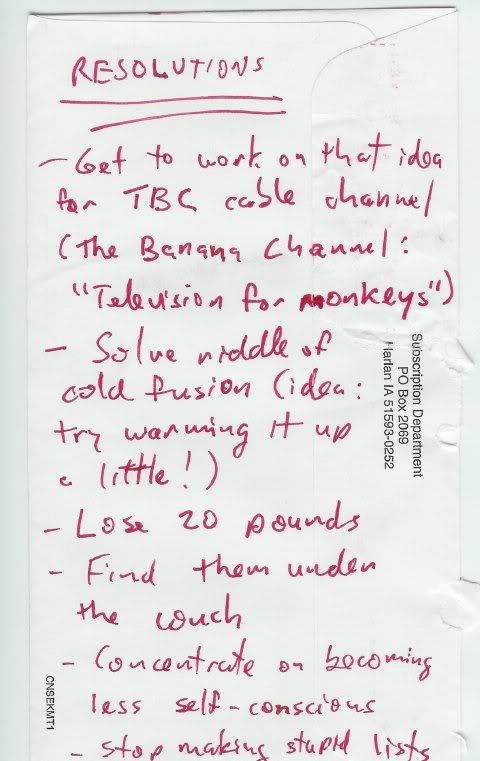 RESOLUTIONS
- Get to work on that idea
for TBC cable channel
(The Banana Channel:
"Television for monkeys")
- Solve riddle of
cold fusion (idea:
try warming it up
a little!)
- Lose 20 pounds
- Find them under
the couch
- Concentrate on becoming
less self-conscious
- Stop making stupid lists
Subscription Department
PO Box 2069
Harlan IA 51593-0252
CNSEKMT1